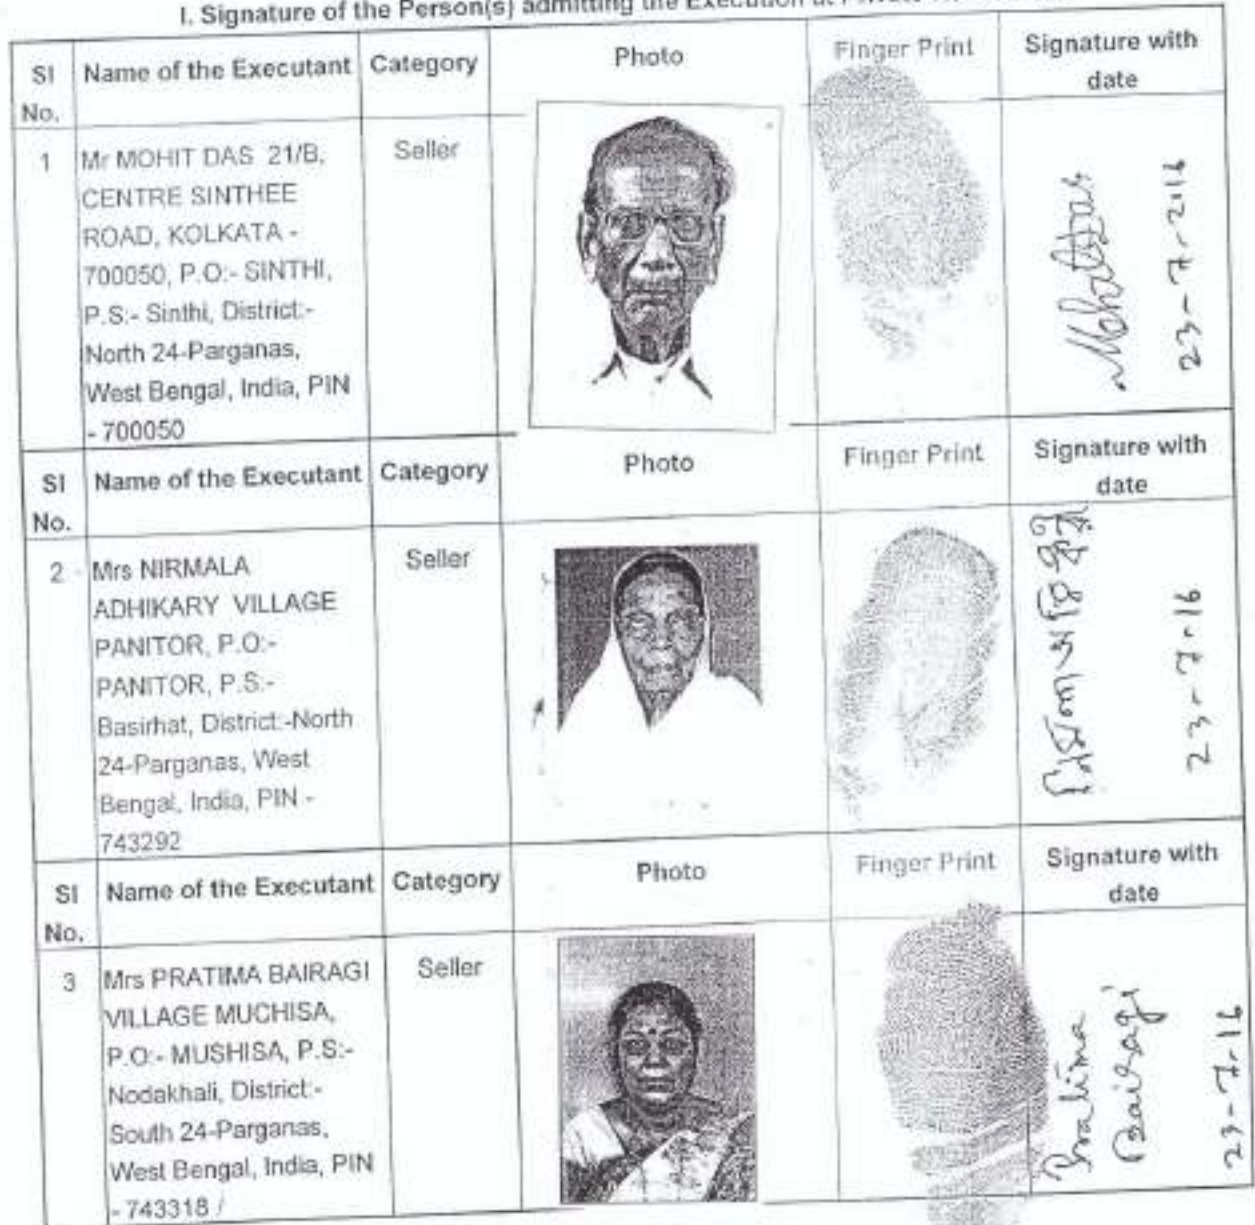 I. Signature of the Person(s) admitting the Execution at Private
Sl No. Name of the Executant Category Photo Finger Print Signature with date
1 Mr MOHIT DAS 21/B, Seller
CENTRE SINTHEE
ROAD, KOLKATA -
700050, P.O:- SINTHI,
P.S:- Sinthi, District:-
North 24-Parganas,
West Bengal, India, PIN
- 700050
Mohit Das
23-7-2016
Sl No. Name of the Executant Category Photo Finger Print Signature with date
2 Mrs NIRMALA Seller
ADHIKARY VILLAGE
PANITOR, P.O:-
PANITOR, P.S:-
Basirhat, District:-North
24-Parganas, West
Bengal, India, PIN -
743292
23-7-16
Sl No. Name of the Executant Category Photo Finger Print Signature with date
3 Mrs PRATIMA BAIRAGI Seller
VILLAGE MUCHISA,
P.O:- MUSHISA, P.S:-
Nodakhali, District:-
South 24-Parganas,
West Bengal, India, PIN
- 743318 /
Pratima
Bairagi
23-7-16